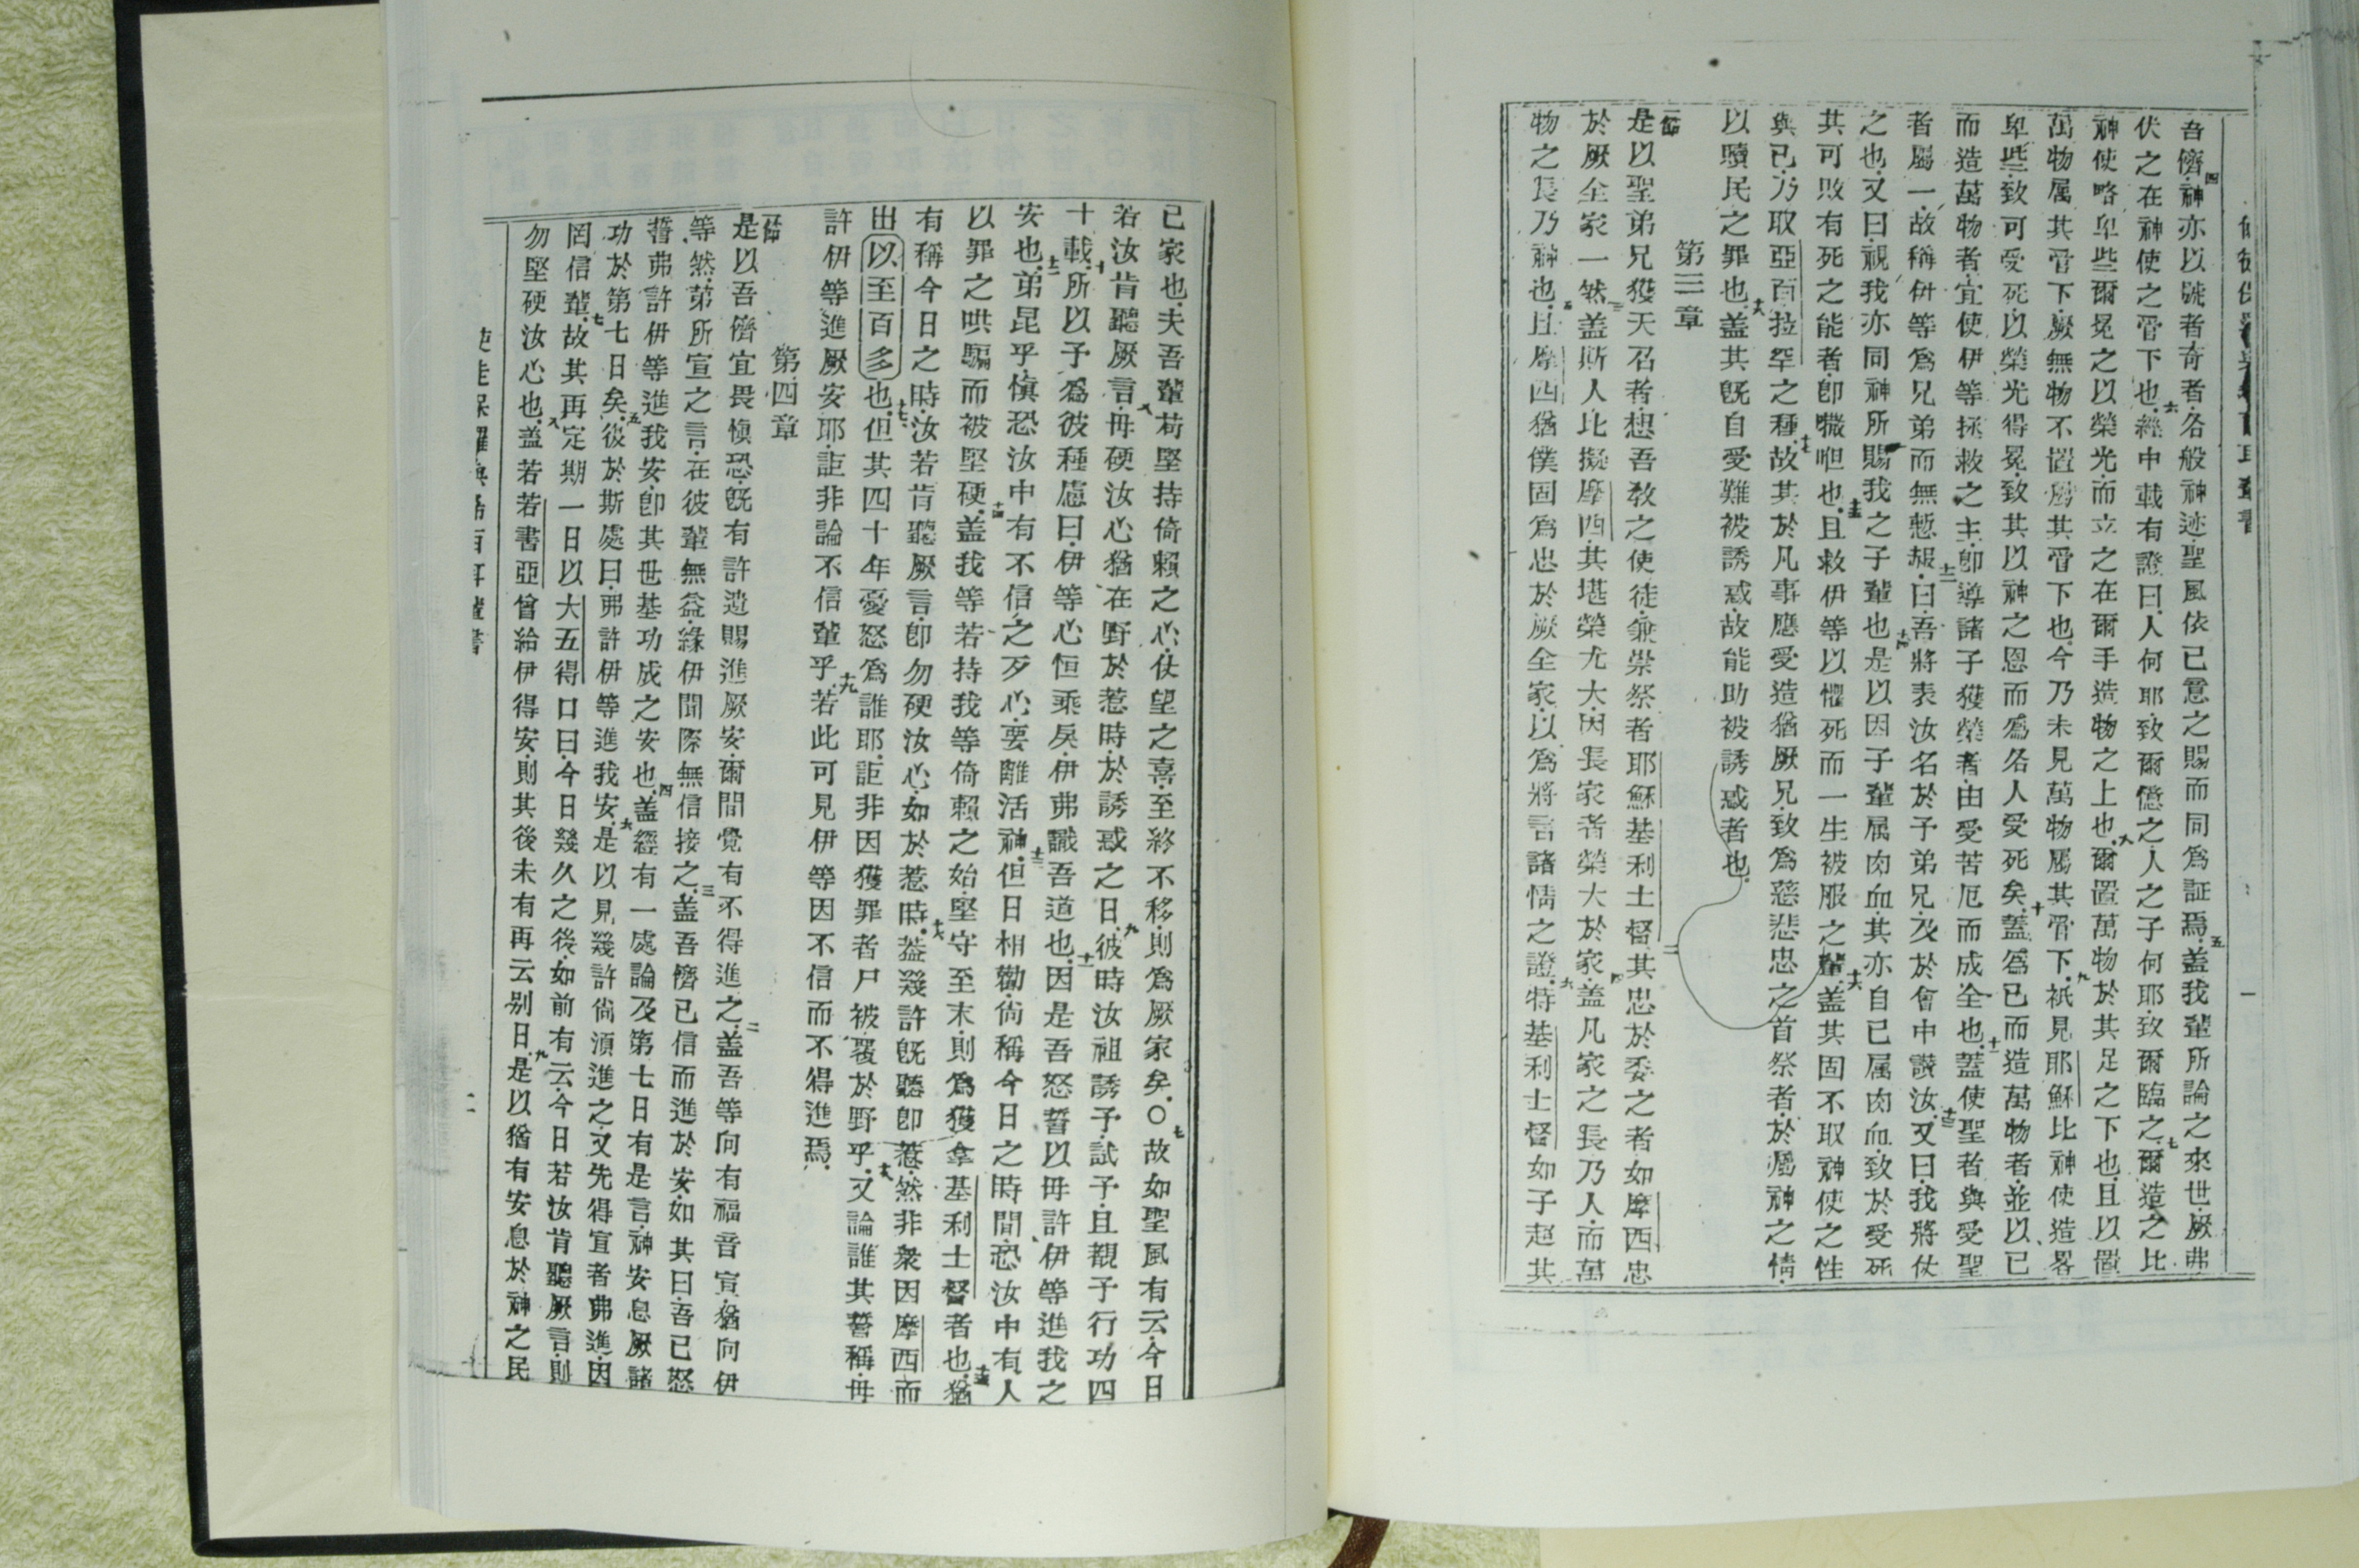 吾儕神亦以號者奇者各般神迹聖風依己意之賜而同爲証焉盖我輩所論之來世厥弗
伏之在神使之管下也經中載有證曰人何耶致爾億之人之子何耶致爾臨之爾造之比
神使略卑些爾冕之以榮光而立之在爾手造物之上也爾置萬物於其足之下也且以置
萬物属其管下厥無物不置属其管下也今乃未見萬物属其管下祇見耶穌比神使造畧
卑些致可受死以榮光得冕致其以神之恩而爲各人受死矣蓋爲己而造萬物者並以己
而造萬物者宜使伊等拯救之主卽導諸子獲榮者由受苦厄而成全也蓋使聖者與受聖
者屬一故稱伊等爲兄弟而無慙赧曰吾將表汝名於予弟兄及於會中讚汝又曰我將仗
之也又曰視我亦同神所賜我之子輩也是以因子輩属肉血其亦自己属肉血致於受死
其可敗有死之能者卽㘔呾也且救伊等以懼死而一生被服之輩盖其固不取神使之性
與己乃取亞百拉罕之種故其於凡事應受造猶厥兄致爲慈悲忠之首祭者於屬神之情
以贖民之罪也盖其旣自受難被誘惑故能助被誘惑者也
第三章
一節是以聖弟兄獲天召者想吾敎之使徒兼崇祭者耶穌基利士督其忠於委之者如摩西忠
於厥全家一然盖斯人比擬摩西其堪榮尤大因長家者榮大於家盖凡家之長乃人而萬
物之長乃神也且摩西猶僕固爲忠於厥全家以爲將言諸情之證特基利士督如子起其
己家也夫吾輩苟堅持倚賴之心仗望之喜至終不移則爲厥家矣○故如聖風有云今日
若汝肯聽厥言毋硬汝心猶在野於惹時於誘惑之日彼時汝祖誘予試予且覩予行功四
十載所以予爲彼種慮曰伊等心恒乖戾伊弗識吾道也因是吾怒誓以毋許伊等進我之
安也弟昆乎愼恐汝中有不信之歹心要離活神但日相勸尙稱今日之時間恐汝中有人
以罪之哄騙而被堅硬盖我等若持我等倚賴之始堅守至末則爲獲拿基利士督者也猶
有稱今日之時汝若肯聽厥言卽勿硬汝心如於惹時葢幾許旣聽卽惹然非衆因摩西而
出以至百多也但其四十年憂怒爲誰耶詎非因獲罪者尸被覆於野乎又論誰其誓稱毋
許伊等進厥安耶詎非論不信輩乎若此可見伊等因不信而不得進焉
第四章
一節是以吾儕宜畏愼恐旣有許遺賜進厥安爾間覺有不得進之盖吾等向有福音宣猶向伊
等然第所宣之言在彼輩無益緣伊聞際無信接之盖吾儕已信而進於安如其曰吾已怒
誓弗許伊等進我安卽其世基功成之安也盖經有一處論及第七日有是言神安息厥諸
功於第七日矣彼於斯處曰弗許伊等進我安是以見幾許尙湏進之又先得宣者弗進因
罔信輩故其再定期一日以大五得口曰今日幾久之後如前有云今日若汝肯聽厥言則
勿堅硬汝心也盖若若書亞曾給伊得安則其後未有再云别日是以猶有安息於神之民
使徒保羅與希百耳輩書 二